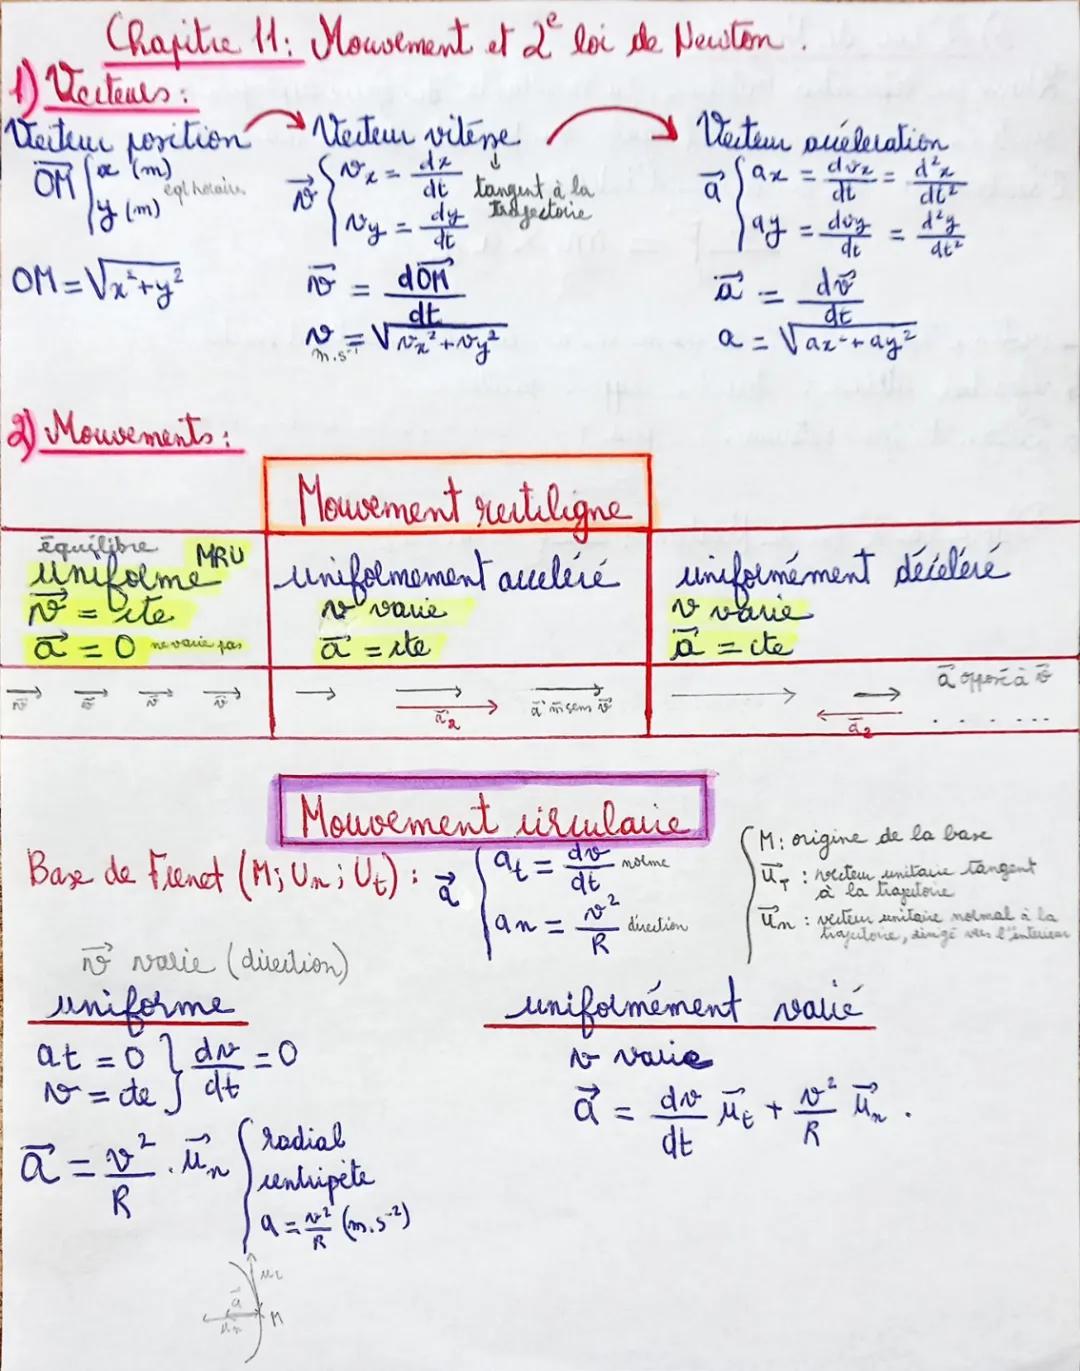 Chapitre 11: Mouvement et 2e loi de Newton.
1) Vecteurs:
Vecteur position → Vecteur vitesse → Vecteur accéleration
OM⃗ { x (m) y (m) eqt horaires
v⃗ { vx = dx/dt vy = dy/dt
↓ tangent à la trajectoire
a⃗ { ax = dvx/dt = d²x/dt² ay = dvy/dt = d²y/dt²
OM = √x²+y²
v⃗ = dOM⃗/dt
v = √vx²+vy²
m.s⁻¹
a⃗ = dv⃗/dt
a = √ax²+ay²
2) Mouvements:
Mouvement rectiligne
équilibre
uniforme MRU
v⃗ = cte
a⃗ = 0 ne varie pas
uniformement acceléré
v varie
a⃗ = cte
uniformément décéléré
v varie
a⃗ = cte
v⃗ v⃗ v⃗ v⃗
a⃗2 a⃗ m̄ sens v⃗
a⃗ opposé à v⃗
a⃗2 . . . . . .
Mouvement circulaire
Base de Frenet (M; Un; Ut): a⃗ { at = dv/dt norme
an = v²/R direction
{ M: origine de la base
u⃗T : vecteur unitaire tangent
à la trajectoire
u⃗n : vecteur unitaire normal à la
trajectoire, dirigé vers l'intérieur
v⃗ varie (direction)
uniforme
at = 0
v = cte } dv/dt = 0
a⃗ = v²/R . u⃗n { radial
centripète
a = v²/R (m.s⁻²)
uniformément varié
v varie
a⃗ = dv/dt u⃗t + v²/R u⃗n .
a⃗
M